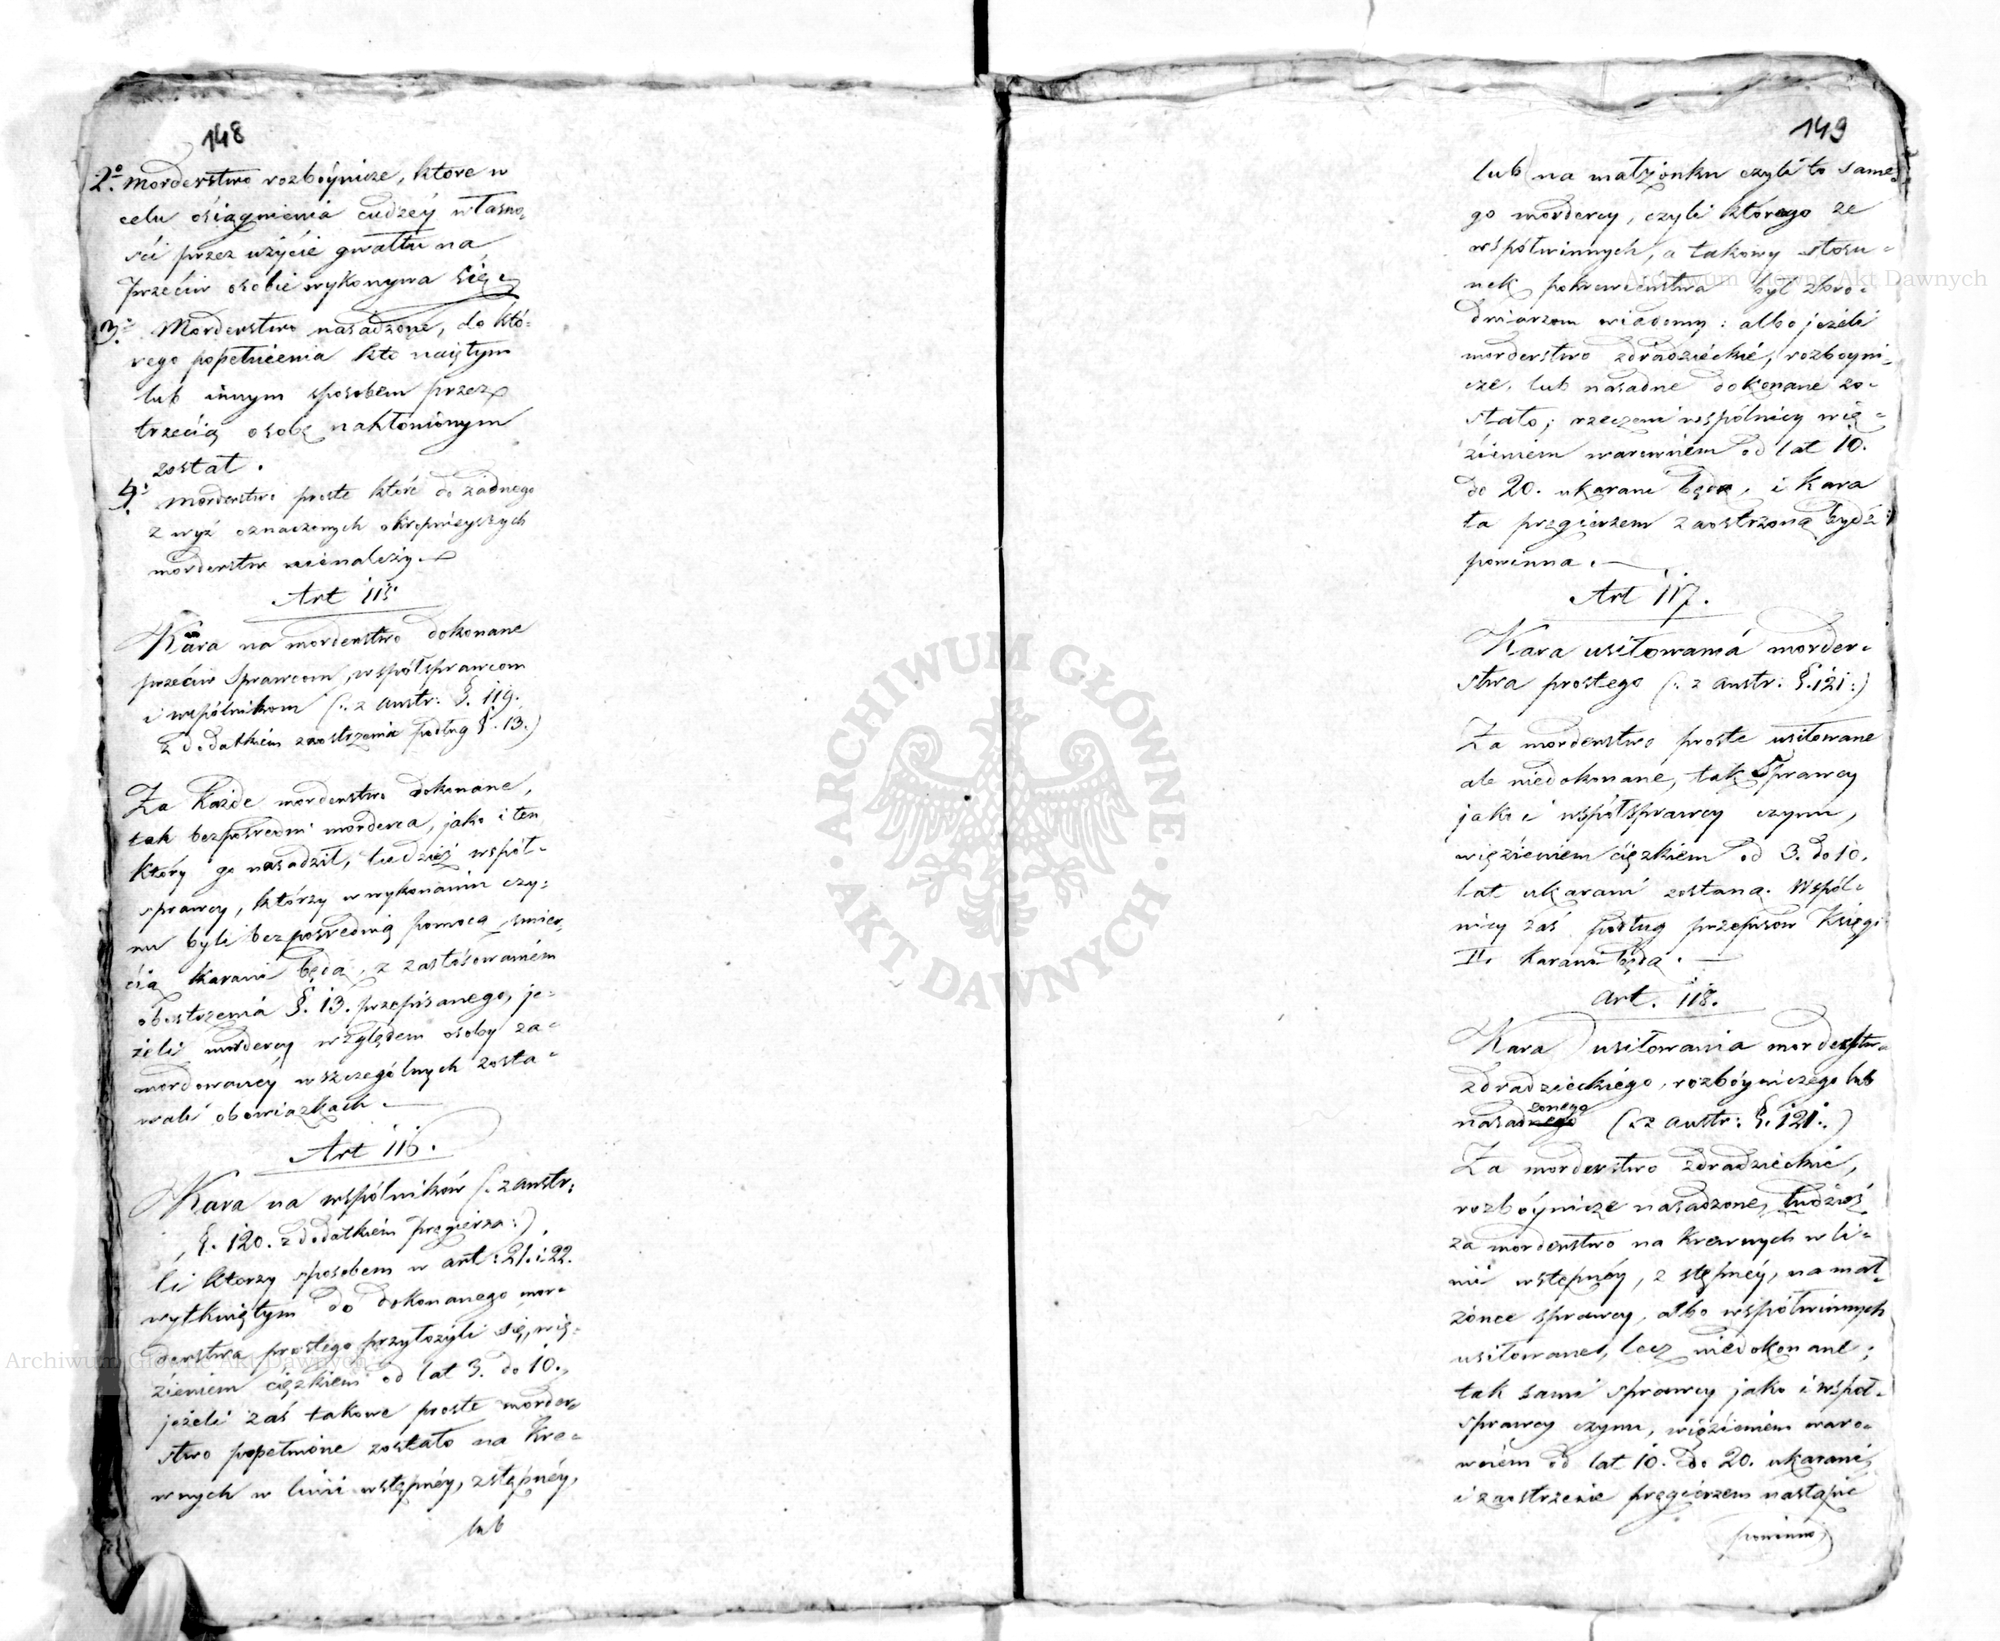 148
2º. Morderstwo rozbóynicze, które w
celu osiągnienia cudzey własno-
ści przez użycie gwałtu na
przeciw osobie wykonywa się
3º. Morderstwo nasadzone, do któ-
rego popełnienia kto naiętym
lub innym sposobem przez
trzecią osobę nakłonionym
został.
4º. Morderstwo proste które do żadnego
z wyż oznaczonych okropnieyszych
morderstw nienależy.
Art 115
Kara na morderstwo dokonane
przeciw Sprawcom, współsprawcom
i wspólnikom (: z austr: §. 119.
z dodatkiem zaostrzenia podług §. 13.)
Za każde morderstwo dokonane,
tak bezpośredni morderca, jako i ten
który go nasadził, tudzież współ-
sprawcy, którzy w wykonaniu czy-
nu byli bezpośrednią pomocą, śmier-
cią karani będą, z zastósowaniem
obostrzenia §. 13. przepisanego, je-
żeli mordercy względem osoby za-
mordowaney w szczególnych zosta-
wali obowiązkach.
Art 116.
Kara na wspólników (: z austr:
§. 120. z dodatkiem pręgierza :)
Ci którzy sposobem w art: 21. i 22.
wytkniętym do dokonanego mor-
derstwa prostego przyłożyli się, wię-
zieniem ciężkiem od lat 3. do 10.,
jeżeli zaś takowe proste morder-
stwo popełnione zostało na kre-
wnych w linii wstępnéy, zstępnéy,
lub
149
lub na małżonku czyli to same-
go mordercy, czyli którego ze
współwinnych, a takowy stosu-
nek pokrewieństwa był zbro-
dniarzom wiadomy: albo jeżeli
morderstwo zdradzieckie, rozboyni-
cze, lub nasadne dokonane zo-
stało; rzeczeni wspólnicy wię-
zieniem warownem od lat 10.
do 20. ukarani będą, i kara
ta pręgierzem zaostrzoną bydź
powinna.
Art 117.
Kara usiłowaniá morder-
stwa prostego (: z austr: §. 121 :)
Za morderstwo proste usiłowane
ale niedokonane, tak Sprawcy
jako i współsprawcy czynu,
więzieniem ciężkiem od 3. do 10.
lat ukarani zostaną. Wspól-
nicy zaś podług przepisów Księgi
II. karani będą.
Art. 118.
Kara usiłowania morderstwa
zdradzieckiego, rozbóyniczego lub
zonego
nasadnego (: z austr: §. 121 :)
Za morderstwo zdradzieckie,
rozbóynicze nasadzone, tudzież
za morderstwo na krewnych w li-
nii wstępnéy, zstępnéy, na mał-
żonce sprawcy, albo współwinnych
usiłowane, lecz niedokonane;
tak sami sprawcy jako i współ-
sprawcy czynu, więzieniem waro-
wném od lat 10. do 20. ukarani
i zaostrzenie pręgierzem nastąpić
powinno
Archiwum Główne Akt Dawnych
Archiwum Główne Akt Dawnych
ARCHIWUM GŁÓWNE
AKT DAWNYCH